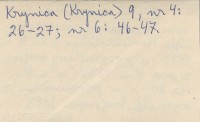 Krynica (Krynica) 9, nr 4:
26-27; nr 6: 46-47.